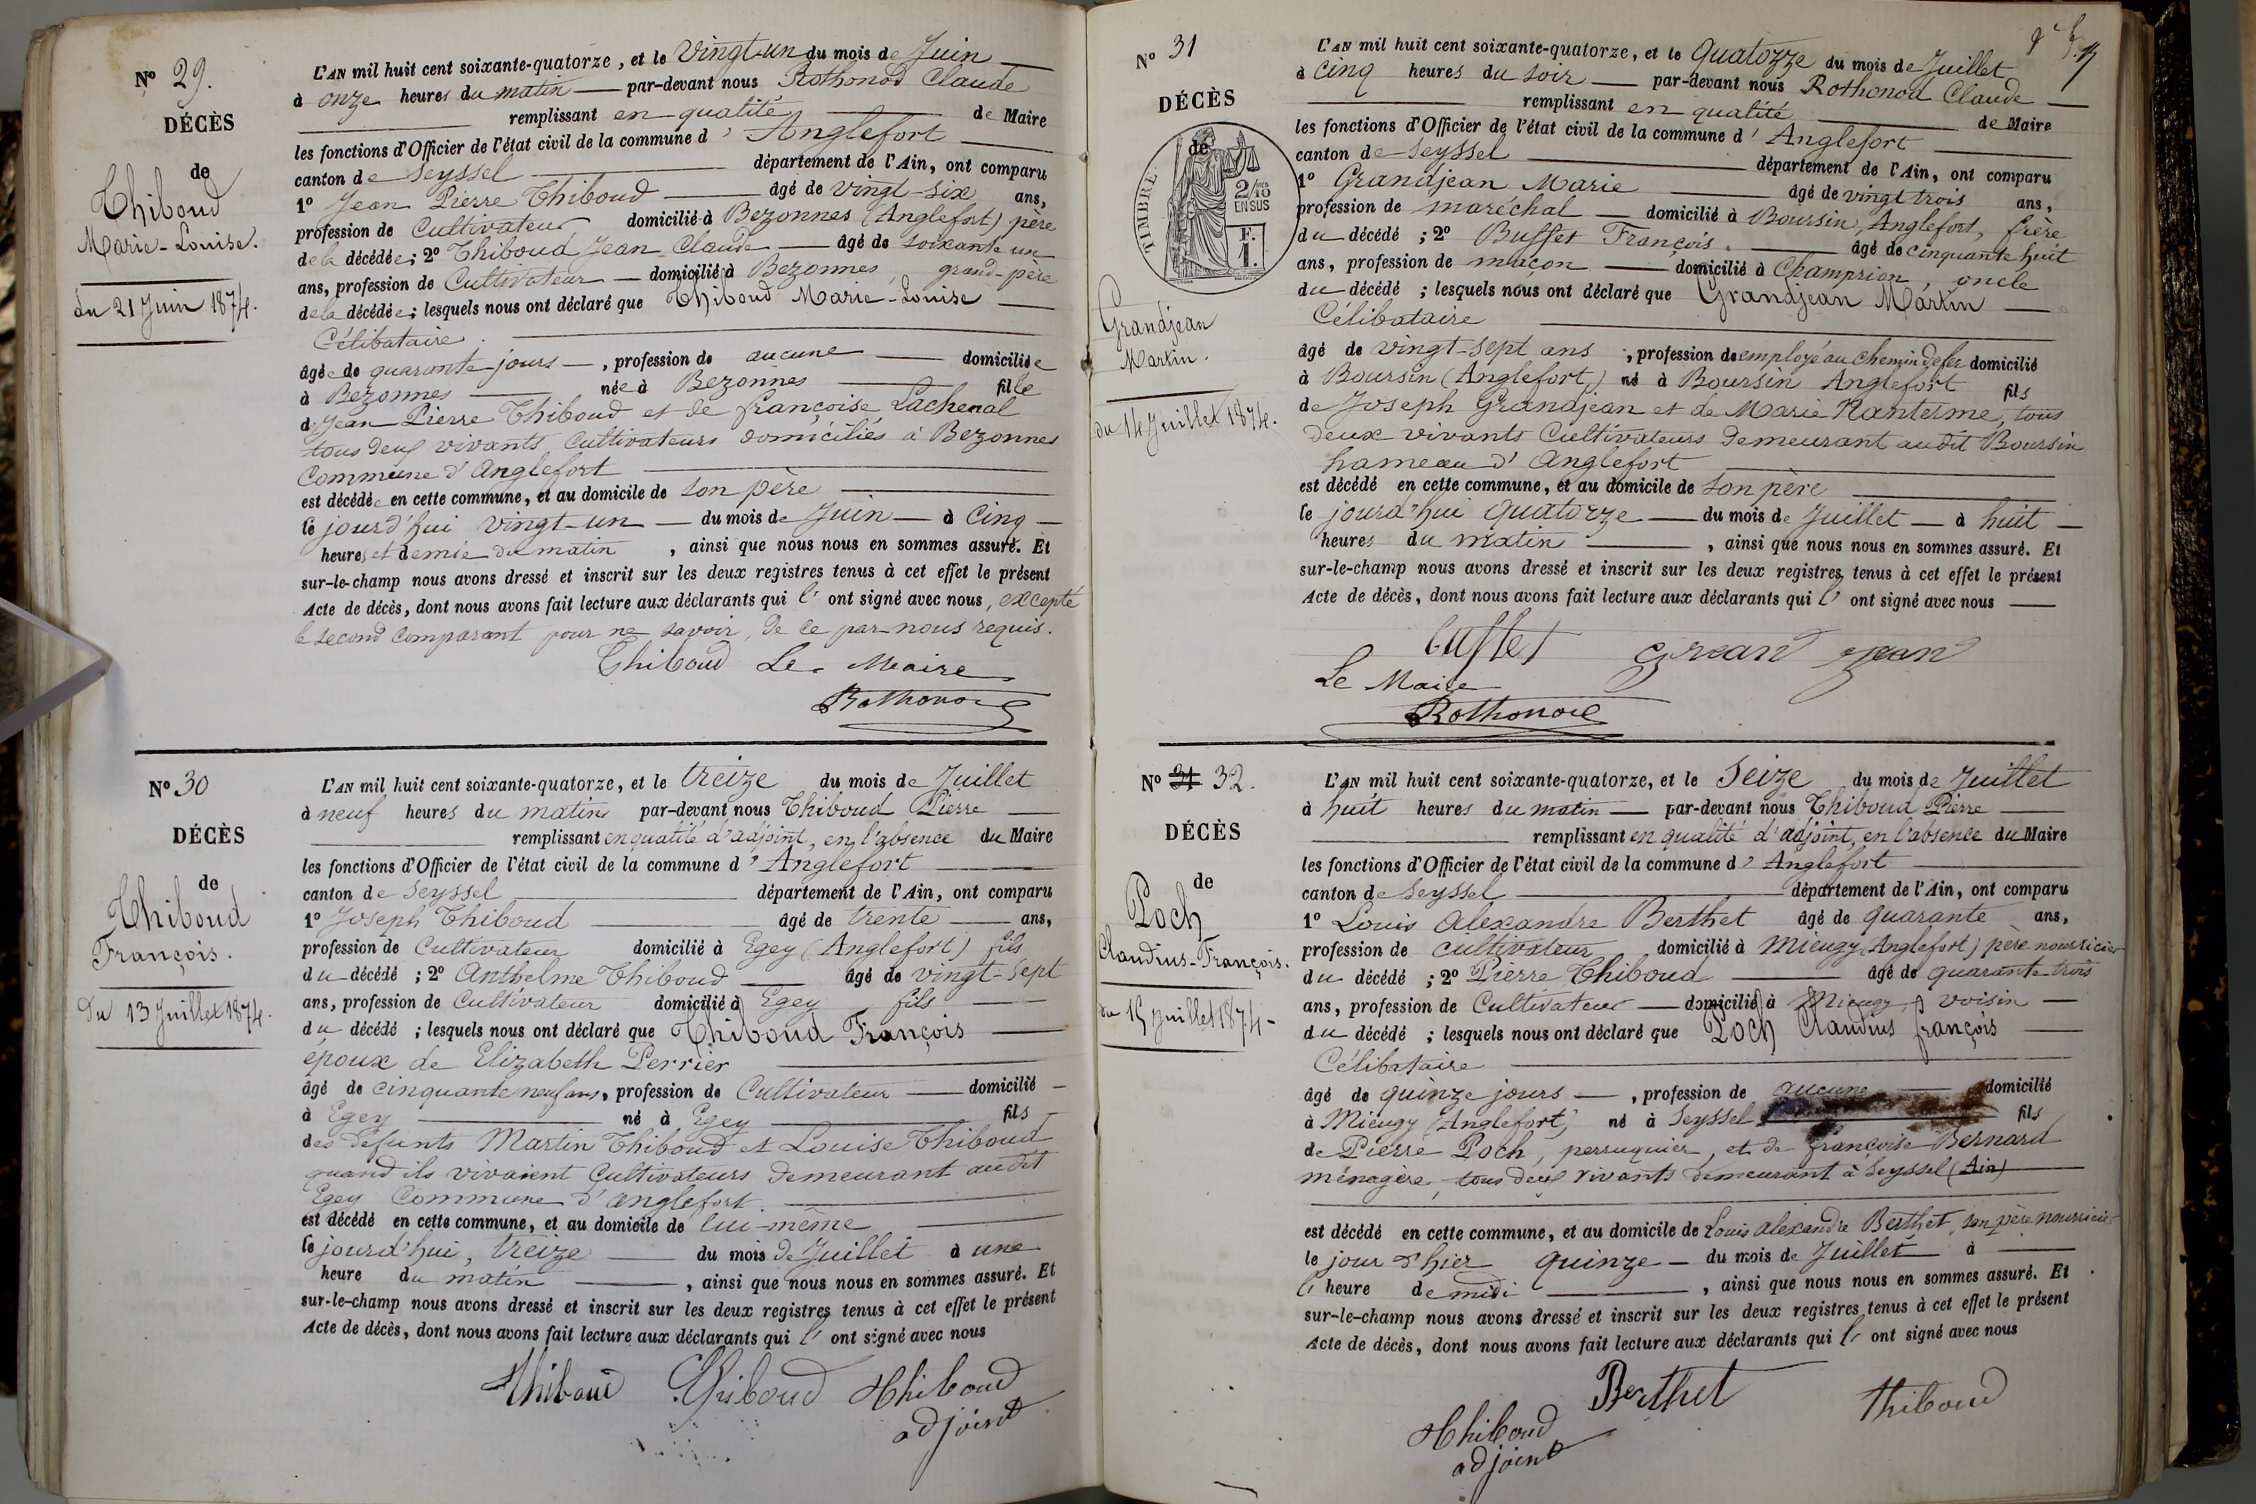 N° 29.
DÉCÈS
de
Thiboud
Marie-Louise.
du 21 Juin 1874.
L'AN mil huit cent soixante-quatorze, et le Vingt-un du mois de Juin
à onze heures du matin par-devant nous Rothonod Claude
remplissant en qualité de Maire
les fonctions d'Officier de l'état civil de la commune d' Anglefort
canton de Seyssel département de l'Ain, ont comparu
1° Jean Pierre Thiboud âgé de vingt-six ans,
profession de Cultivateur domicilié à Bezonnes (Anglefort) père
de la décédée; 2° Thiboud Jean Claude âgé de soixante un
ans, profession de Cultivateur domicilié à Bezonnes, grand-père
de la décédée; lesquels nous ont déclaré que Thiboud Marie-Louise
Célibataire.
âgée de quarante jours, profession de aucune domiciliée
à Bezonnes née à Bezonnes fille
de Jean Pierre Thiboud et de françoise Lachenal
tous deux vivants Cultivateurs domiciliés à Bezonnes
Commune d'Anglefort
est décédée en cette commune, et au domicile de son père
le jourd'hui vingt-un du mois de Juin à Cinq
heures et demie du matin, ainsi que nous nous en sommes assuré. Et
sur-le-champ nous avons dressé et inscrit sur les deux registres tenus à cet effet le présent
Acte de décès, dont nous avons fait lecture aux déclarants qui l' ont signé avec nous, excepté
le second comparant pour ne savoir, de ce par nous requis.
Thiboud Le Maire
Rothonod
N° 30
DÉCÈS
de
Thiboud
François.
Du 13 Juillet 1874.
L'AN mil huit cent soixante-quatorze, et le treize du mois de Juillet
à neuf heures du matin par-devant nous Thiboud Pierre
remplissant en qualité d'adjoint, en l'absence du Maire
les fonctions d'Officier de l'état civil de la commune d' Anglefort
canton de Seyssel département de l'Ain, ont comparu
1° Joseph Thiboud âgé de trente ans,
profession de Cultivateur domicilié à Egey (Anglefort) fils
du décédé; 2° Anthelme Thiboud âgé de vingt-sept
ans, profession de Cultivateur domicilié à Egey fils
du décédé; lesquels nous ont déclaré que Thiboud François
époux de Elizabeth Perrier
âgé de cinquante neuf ans, profession de Cultivateur domicilié
à Egey né à Egey fils
des défunts Martin Thiboud et Louise Thiboud
quand ils vivaient Cultivateurs demeurant audit
Egey Commune d'anglefort.
est décédé en cette commune, et au domicile de lui-même
le jourd'hui, treize du mois de Juillet à une
heure du matin, ainsi que nous nous en sommes assuré. Et
sur-le-champ nous avons dressé et inscrit sur les deux registres tenus à cet effet le présent
Acte de décès, dont nous avons fait lecture aux déclarants qui l' ont signé avec nous
Thiboud Thiboud Thiboud
adjoint
N° 31
DÉCÈS
de
TIMBRE
2/10 EN SUS
Grandjean
Martin.
du 14 Juillet 1874.
L'AN mil huit cent soixante-quatorze, et le Quatorze du mois de Juillet
à cinq heures du soir par-devant nous Rothonod Claude
remplissant en qualité de Maire
les fonctions d'Officier de l'état civil de la commune d' Anglefort
canton de Seyssel département de l'Ain, ont comparu
1° Grandjean Marie âgé de vingt trois ans,
profession de maréchal domicilié à Boursin, Anglefort, frère
du décédé; 2° Buffet François. âgé de cinquante huit
ans, profession de maçon domicilié à Champrion, oncle
du décédé; lesquels nous ont déclaré que Grandjean Martin
Célibataire
âgé de vingt-sept ans, profession de employé au chemin de fer domicilié
à Boursin (Anglefort,) né à Boursin Anglefort fils
de Joseph Grandjean et de Marie Nanterme, tous
deux vivants Cultivateurs demeurant au dit Boursin
hameau d' Anglefort
est décédé en cette commune, et au domicile de son père
le jourd'hui quatorze du mois de Juillet à huit
heures du matin, ainsi que nous nous en sommes assuré. Et
sur-le-champ nous avons dressé et inscrit sur les deux registres tenus à cet effet le présent
Acte de décès, dont nous avons fait lecture aux déclarants qui l' ont signé avec nous
buffet grand jean
Le Maire
Rothonod
N° 31 32.
DÉCÈS
de
Poch
Claudius-François.
du 15 Juillet 1874
L'AN mil huit cent soixante-quatorze, et le Seize du mois de Juillet
à huit heures du matin par-devant nous Thiboud Pierre
remplissant en qualité d'adjoint, en l'absence du Maire
les fonctions d'Officier de l'état civil de la commune d' Anglefort
canton de Seyssel département de l'Ain, ont comparu
1° Louis Alexandre Berthet âgé de quarante ans,
profession de cultivateur domicilié à Mieugy (Anglefort) père nourricier
du décédé; 2° Pierre Thiboud âgé de quarante-trois
ans, profession de Cultivateur domicilié à Mieugy, voisin
du décédé; lesquels nous ont déclaré que Poch Claudius françois
Célibataire
âgé de quinze jours, profession de aucune domicilié
à Mieugy (Anglefort) né à Seyssel fils
de Pierre Poch, perruquier, et de françoise Bernard
ménagère, tous deux vivants demeurant à Seyssel (Ain)
est décédé en cette commune, et au domicile de Louis alexandre Berthet, son père nourricier
le jour d'hier quinze du mois de Juillet à
l' heure de midi, ainsi que nous nous en sommes assuré. Et
sur-le-champ nous avons dressé et inscrit sur les deux registres tenus à cet effet le présent
Acte de décès, dont nous avons fait lecture aux déclarants qui l' ont signé avec nous
Berthet Thiboud
Thiboud
adjoint